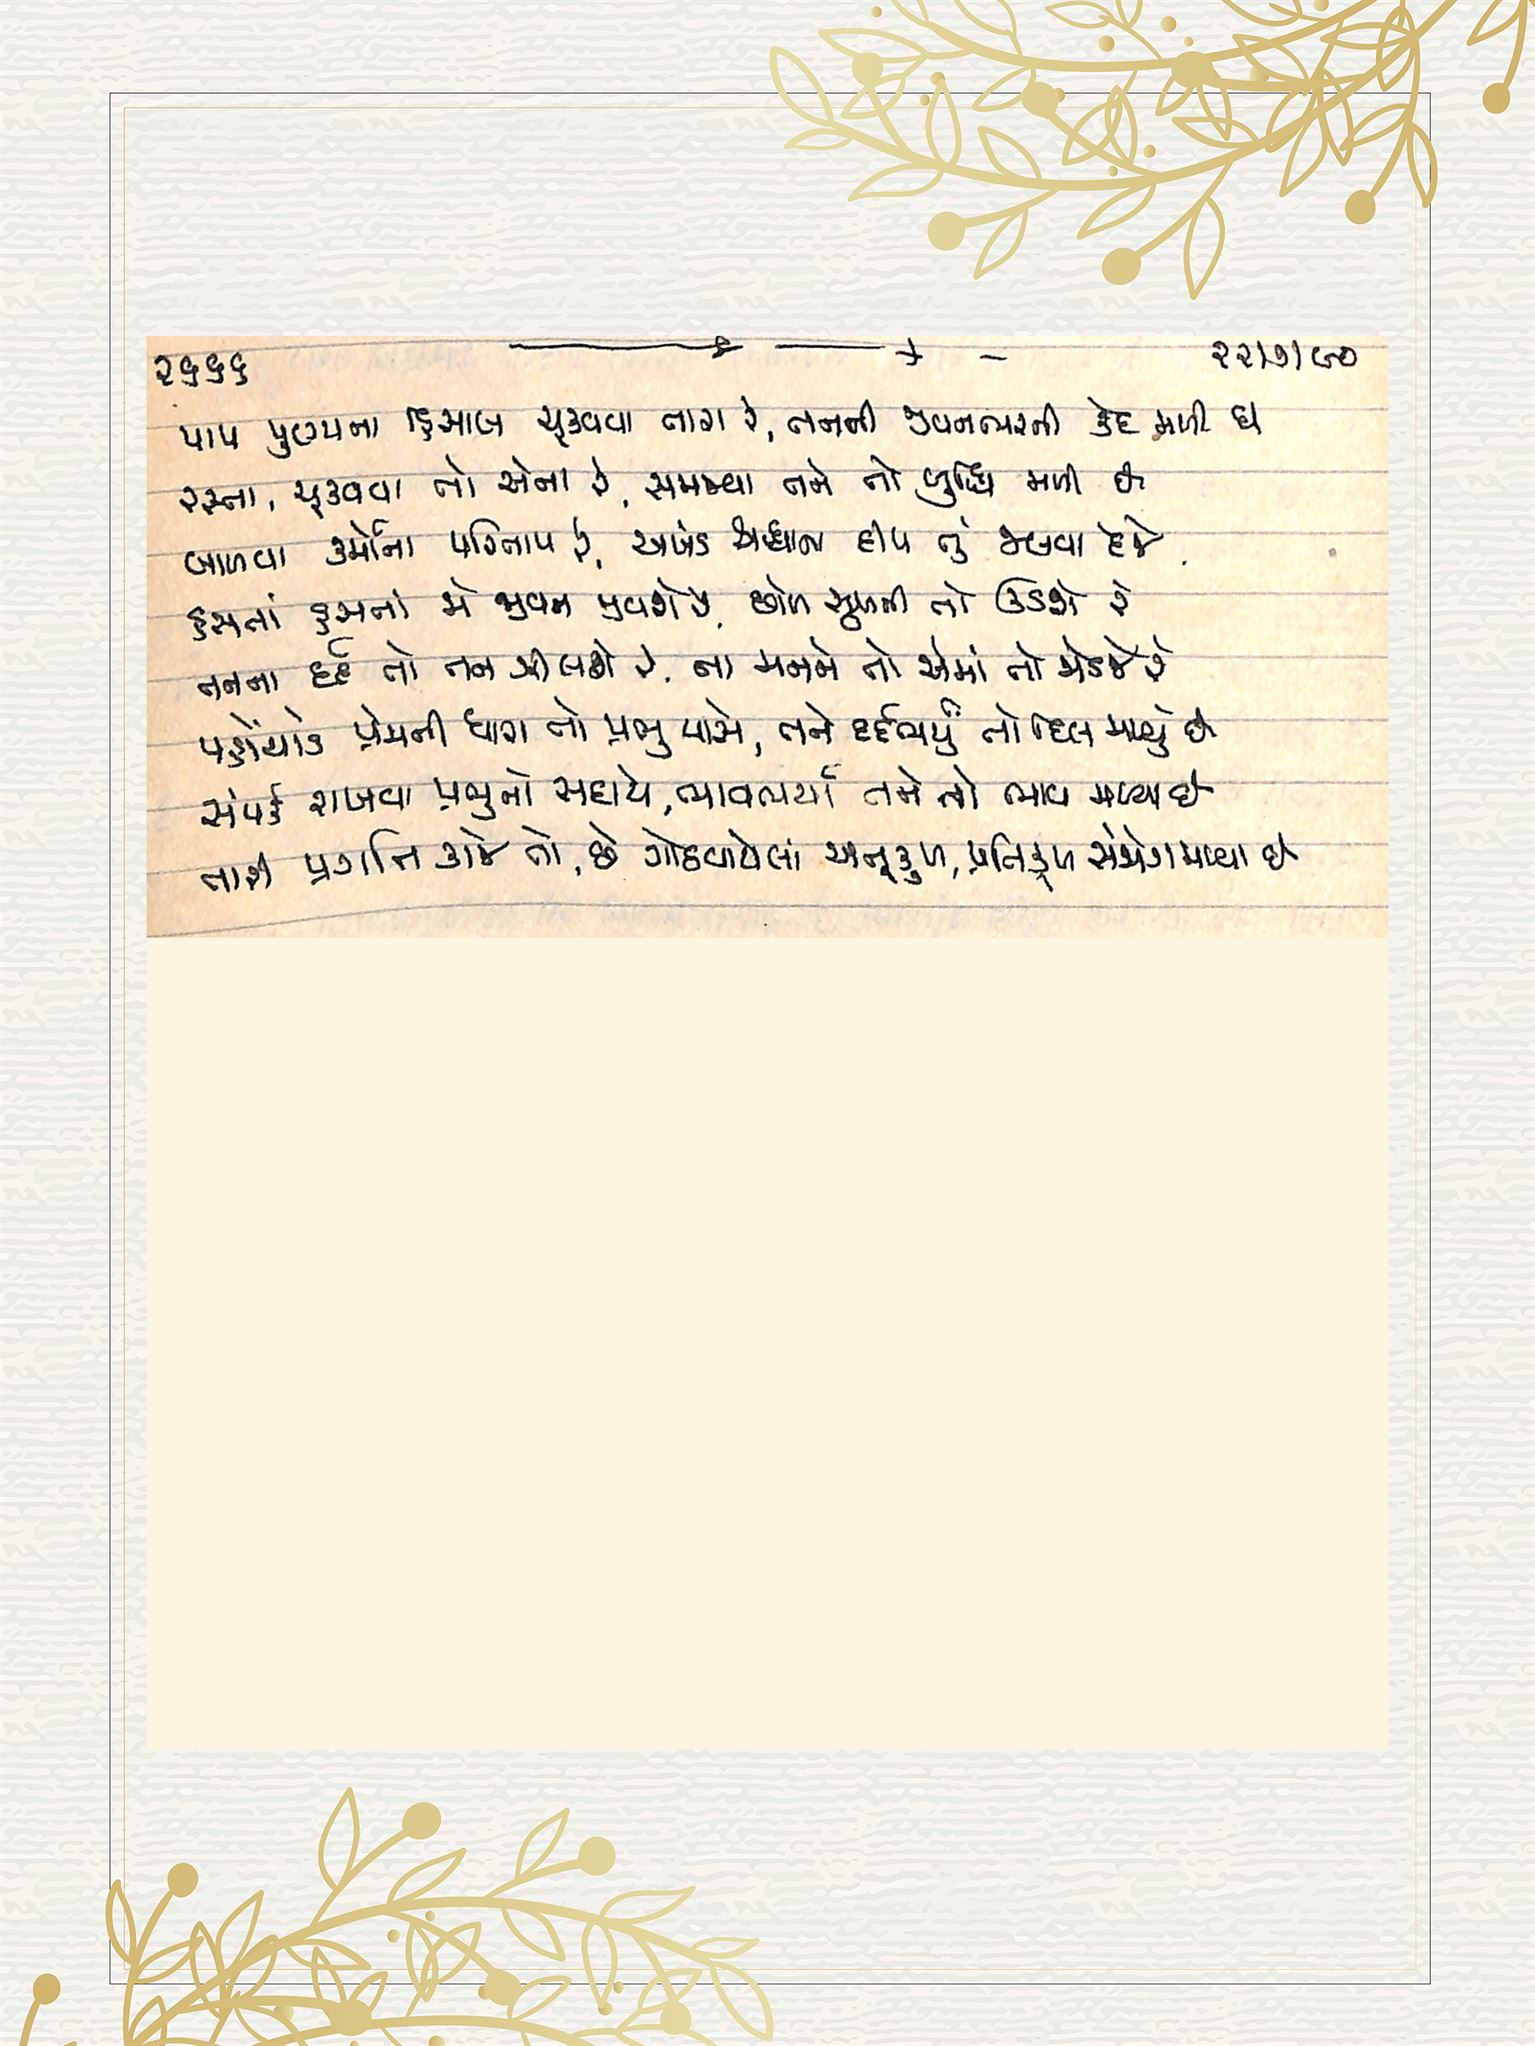 ૨૬૬૬ ૨૨/૭/૯૦
પાપ પુણ્યના હિસાબ ચૂકવવા તારા રે, તનની જીવનભરની કેદ મળી છે
રસ્તા, ચૂકવવા તો એના રે, સમજવા તને તો બુદ્ધિ મળી છે
બાળવા કર્મોના પરિતાપ રે, અખંડ શ્રદ્ધાના દીપ તું જલવા દેજે
હસતાં હસતાં જે જીવન જીવશે રે, છોળ સુખની તો ઉડશે રે
તનના દર્દ તો તન ઝીલશે રે, ના મનને તો એમાં તો જોડજે રે
પહોંચાડ પ્રેમની ધારા તો પ્રભુ પાસે, તને દર્દભર્યું તો દિલ મળ્યું છે
સંપર્ક રાખવા પ્રભુનો સદાયે, ભાવભર્યા તને તો ભાવ મળ્યા છે
તારી પ્રગતિ કાજે તો, છે ગોઠવાયેલાં અનૂકુળ, પ્રતિકૂળ સંજોગ મળ્યા છે